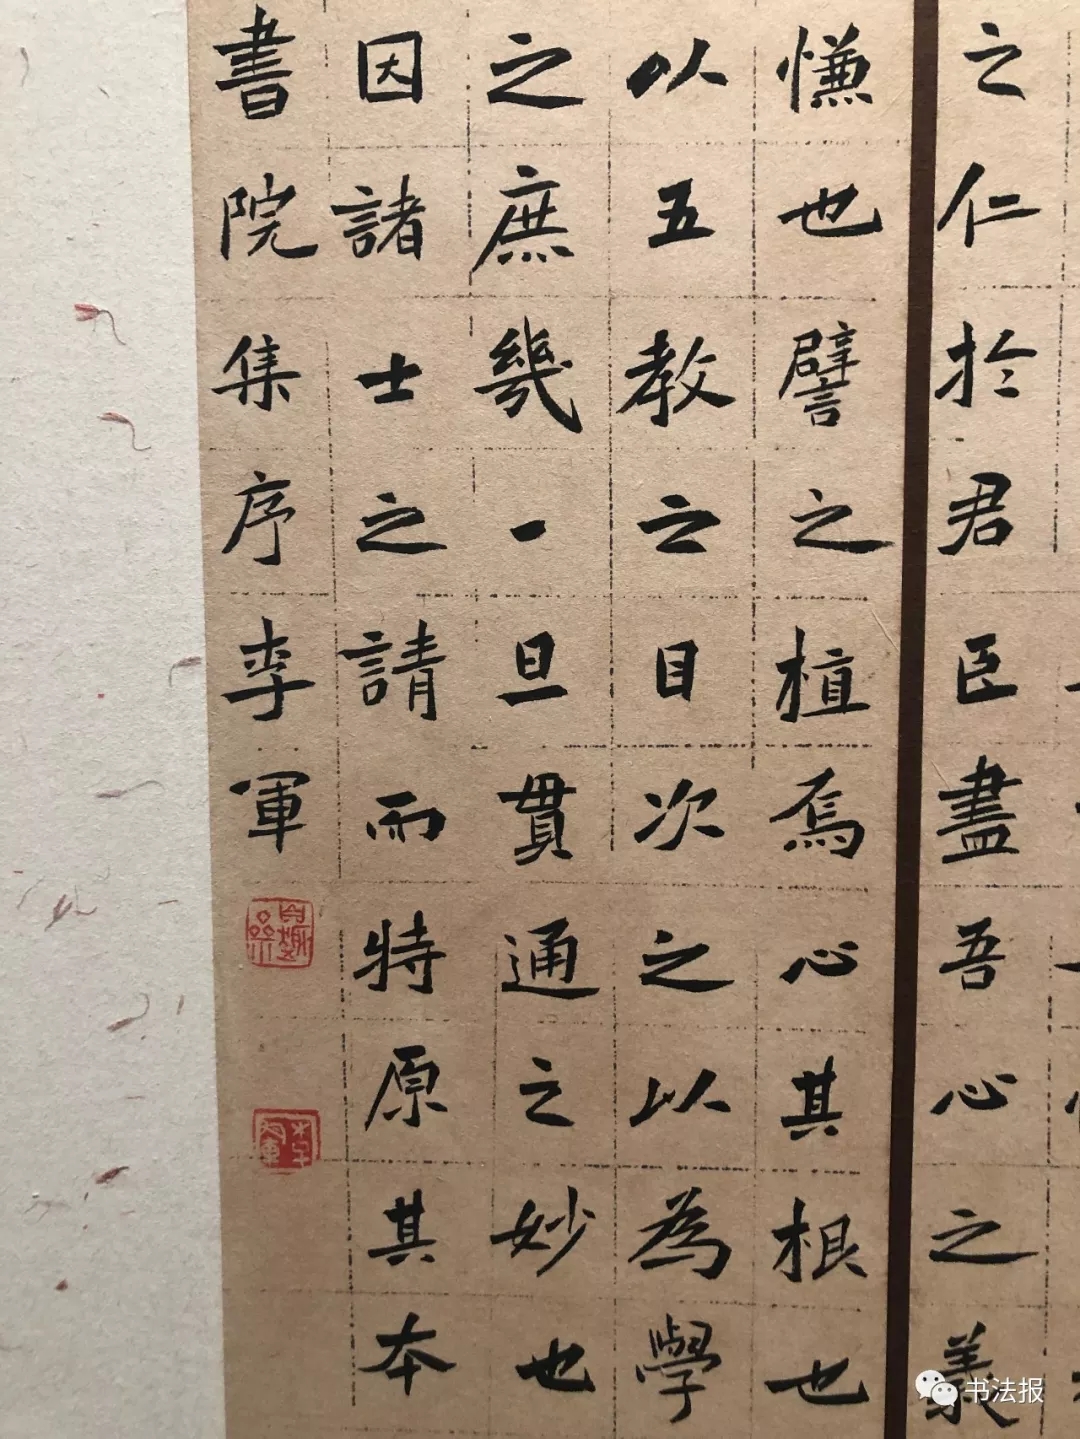 之仁於君臣盡吾心之義
慊也譬之植焉心其根也
以五教之目次之以為學
之庶幾一旦貫通之妙也
因諸士之請而特原其本
書院集序李軍
书法报